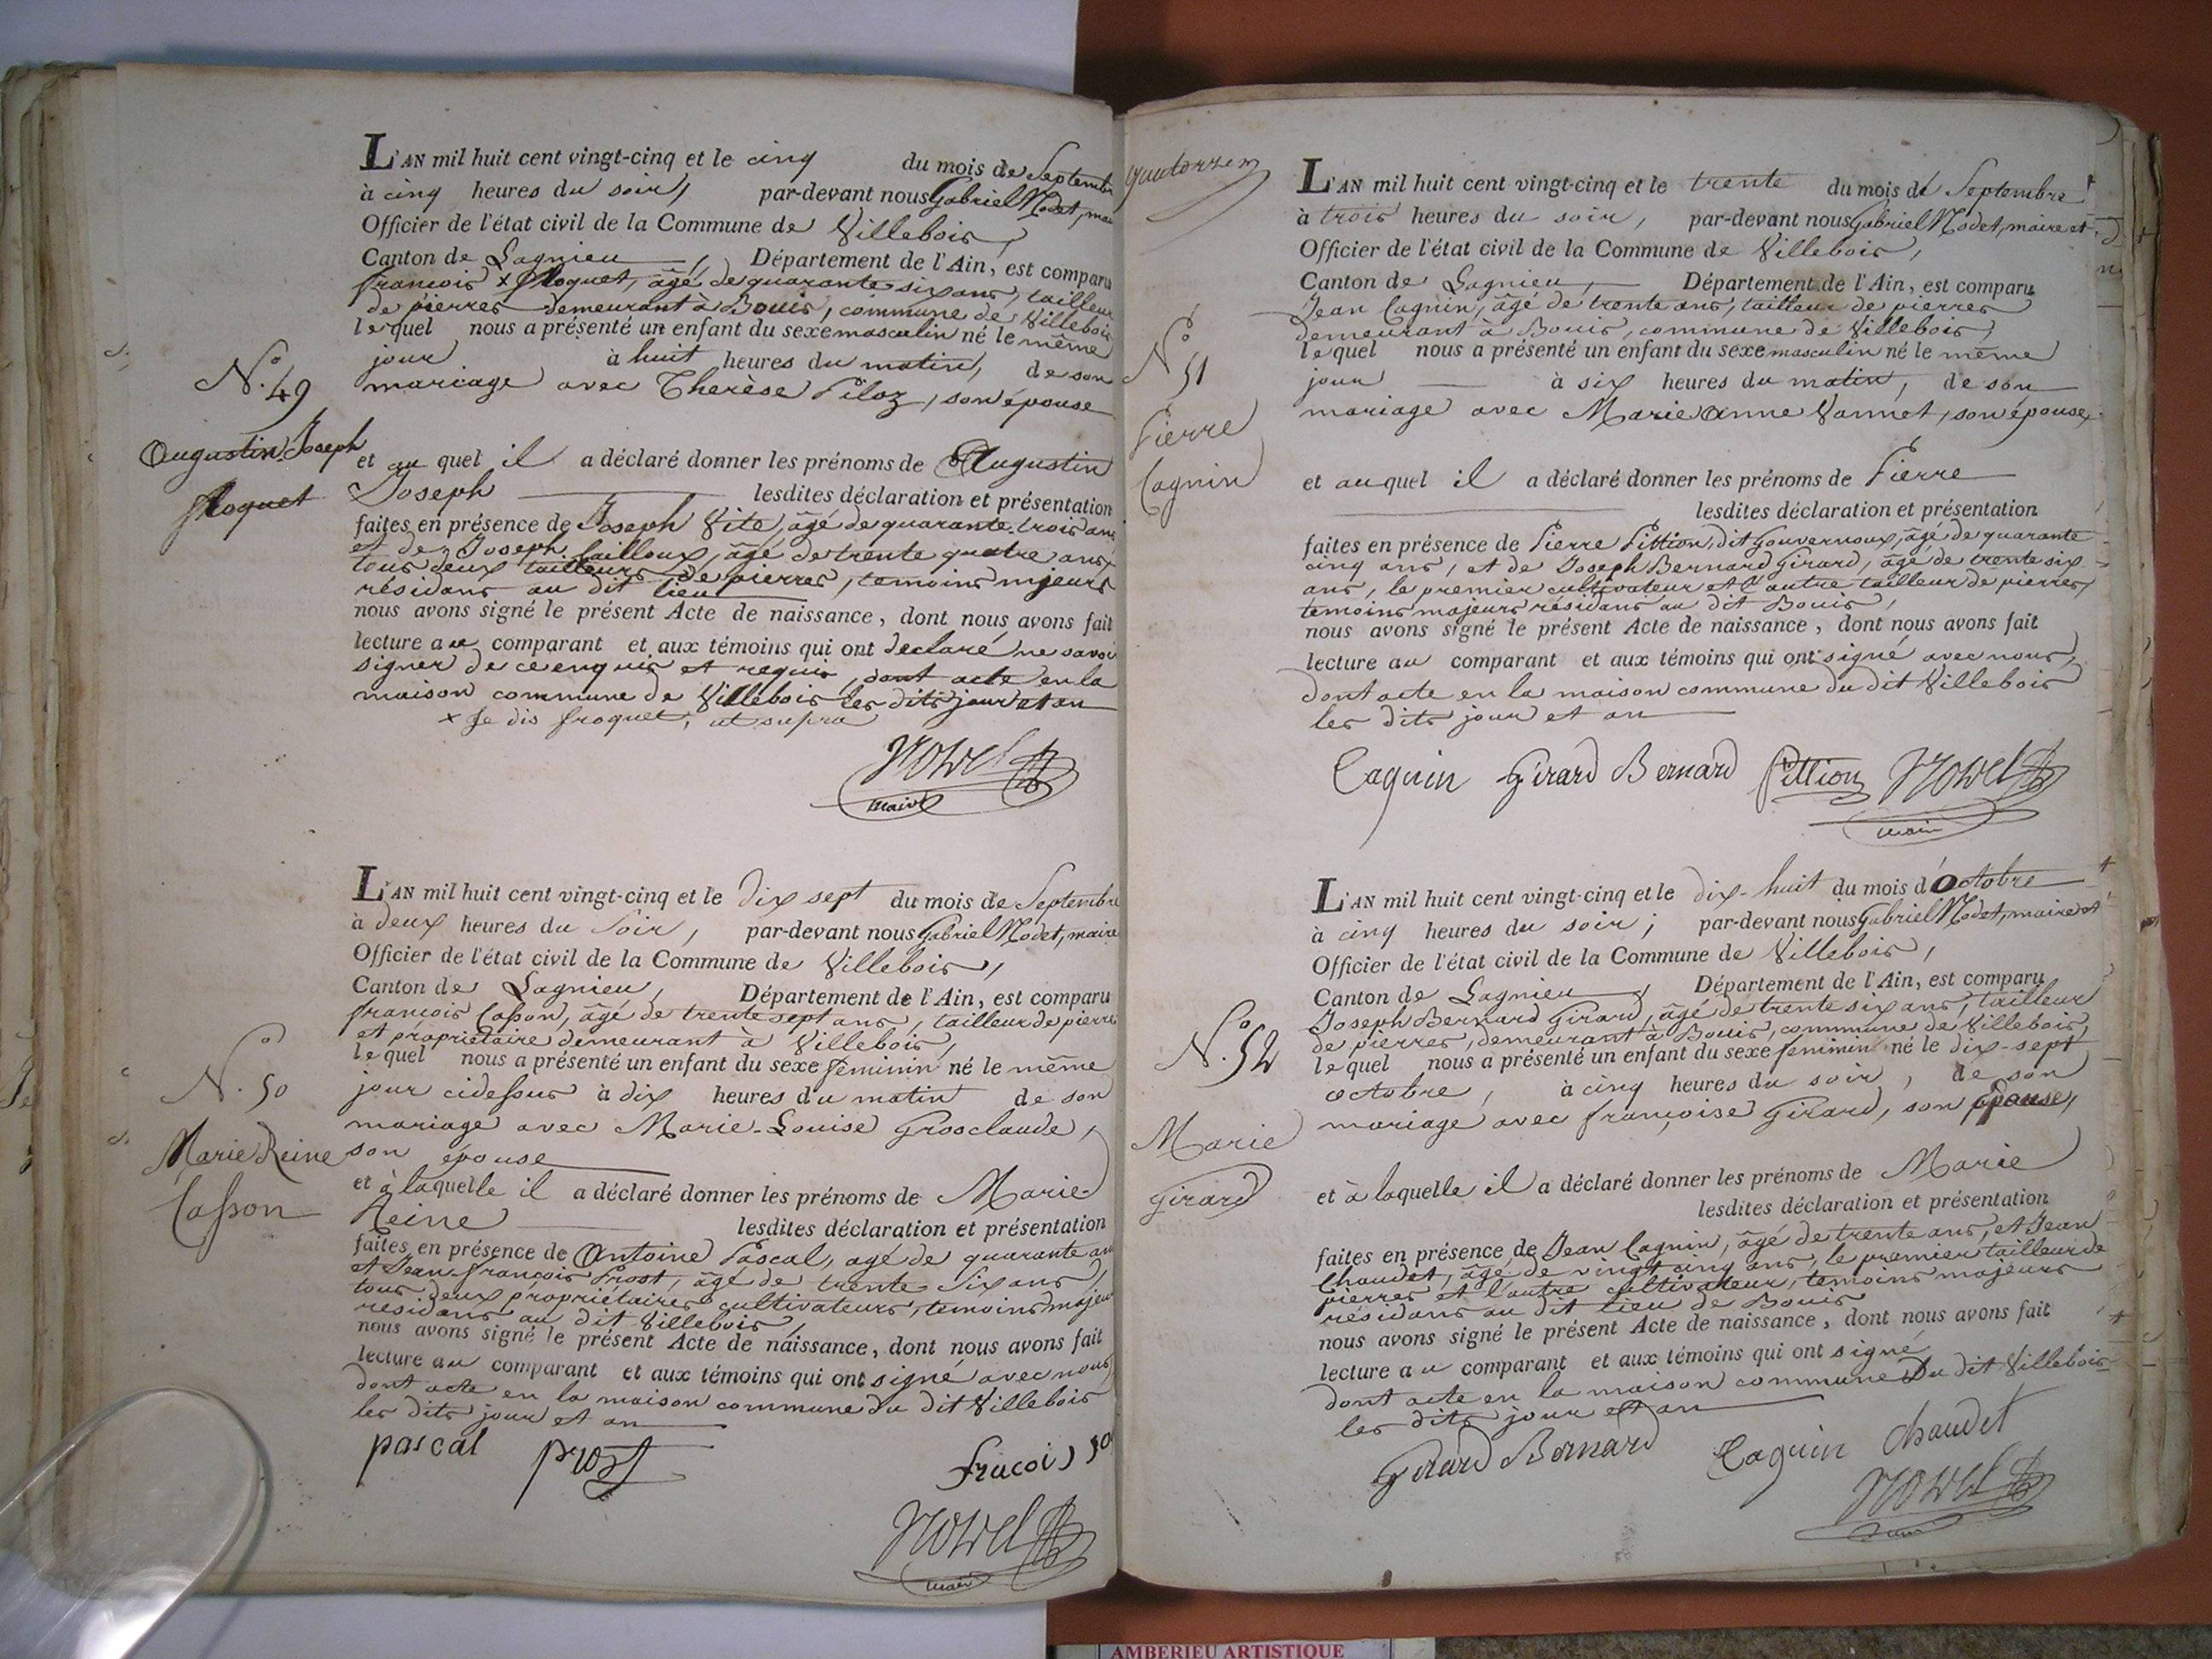 L'AN mil huit cent vingt-cinq et le cinq du mois de Septembre
à cinq heures du soir, par-devant nous Gabriel Nodet, mai
Officier de l'état civil de la Commune de Villebois,
Canton de Lagnieu, Département de l'Ain, est comparu
francois x floquet, âgé de quarante six ans, tailleur
de pierres demeurant à Bouis, commune de Villebois
lequel nous a présenté un enfant du sexe masculin né le même
jour à huit heures du matin, de son
mariage avec Therèse Piloz, son épouse
N.º 49
Augustin Joseph
floquet
et au quel il a déclaré donner les prénoms de Augustin
Joseph lesdites déclaration et présentation
faites en présence de Joseph Vite, âgé de quarante-trois ans
et de Joseph failloux, âgé de trente quatre ans,
tous deux tailleurs de pierres, temoins majeurs
résidans au dit lieu
nous avons signé le présent Acte de naissance, dont nous avons fait
lecture au comparant et aux témoins qui ont declaré ne savoir
signer de ce enquis et requis, dont acte en la
maison commune de Villebois les dits jour et an
x Je dis froquet, ut supra
maire
L'AN mil huit cent vingt-cinq et le dix sept du mois de Septembre
à deux heures du soir, par-devant nous Gabriel Nodet, maire
Officier de l'état civil de la Commune de Villebois,
Canton de Lagnieu, Département de l'Ain, est comparu
francois Casson, âgé de trente sept ans, tailleur de pierres
et propriétaire demeurant à Villebois,
lequel nous a présenté un enfant du sexe féminin né le même
jour cidessus à dix heures du matin de son
mariage avec Marie-Louise Grosclaude,
son épouse
N.º 50
Marie Reine
Casson
et à laquelle il a déclaré donner les prénoms de Marie-
Reine lesdites déclaration et présentation
faites en présence de Antoine Pascal, agé de quarante ans
et Jean-françois Prost, âgé de trente-six ans,
tous deux propriétaires cultivateurs, temoins majeu
résidans au dit Villebois,
nous avons signé le présent Acte de naissance, dont nous avons fait
lecture au comparant et aux témoins qui ont signé avec nous,
dont acte en la maison commune du dit Villebois
les dits jour et an
pascal prost
maire
L'AN mil huit cent vingt-cinq et le trente du mois de Septembre
à trois heures du soir, par-devant nous Gabriel Nodet, maire et
Officier de l'état civil de la Commune de Villebois,
Canton de Lagnieu, Département de l'Ain, est comparu
Jean Cagnin, âgé de trente ans, tailleur de pierres
demeurant à Bouis, commune de Villebois,
lequel nous a présenté un enfant du sexe masculin né le même
jour à six heures du matin, de son
mariage avec Marie Anne Vannet, son épouse,
N.º 51
Pierre
Cagnin
et auquel il a déclaré donner les prénoms de Pierre
lesdites déclaration et présentation
faites en présence de Pierre Pittion, dit Gouvernoux, âgé de quarante
cinq ans, et de Joseph Bernard Girard, âgé de trente six
ans, le premier cultivateur et l'autre tailleur de pierres,
temoins majeurs résidans au dit Bouis,
nous avons signé le présent Acte de naissance, dont nous avons fait
lecture au comparant et aux témoins qui ont signé avec nous,
dont acte en la maison commune du dit Villebois
les dits jour et an
Caguin Girard Bernard Pittion
maire
L'AN mil huit cent vingt-cinq et le dix-huit du mois d'Octobre
à cinq heures du soir; par-devant nous Gabriel Nodet, maire et
Officier de l'état civil de la Commune de Villebois,
Canton de Lagnieu, Département de l'Ain, est comparu
Joseph Bernard Girard, âgé de trente six ans, tailleur
de pierres, demeurant à Bouis, commune de Villebois,
lequel nous a présenté un enfant du sexe feminin né le dix-sept
octobre, à cinq heures du soir, de son
mariage avec françoise Girard, son épouse,
N.º 52
Marie
Girard
et à laquelle il a déclaré donner les prénoms de Marie
lesdites déclaration et présentation
faites en présence de Jean Cagnin, âgé de trente ans, et Jean
Chaudet, âgé de vingt cinq ans, le premier tailleur de
pierres et l'autre cultivateur, temoins majeurs
résidans au dit lieu de Bouis
nous avons signé le présent Acte de naissance, dont nous avons fait
lecture au comparant et aux témoins qui ont signé
dont acte en la maison commune du dit Villebois
les dits jour et an
Girard Bernard Caguin Chaudet
AMBERIEU ARTISTIQUE